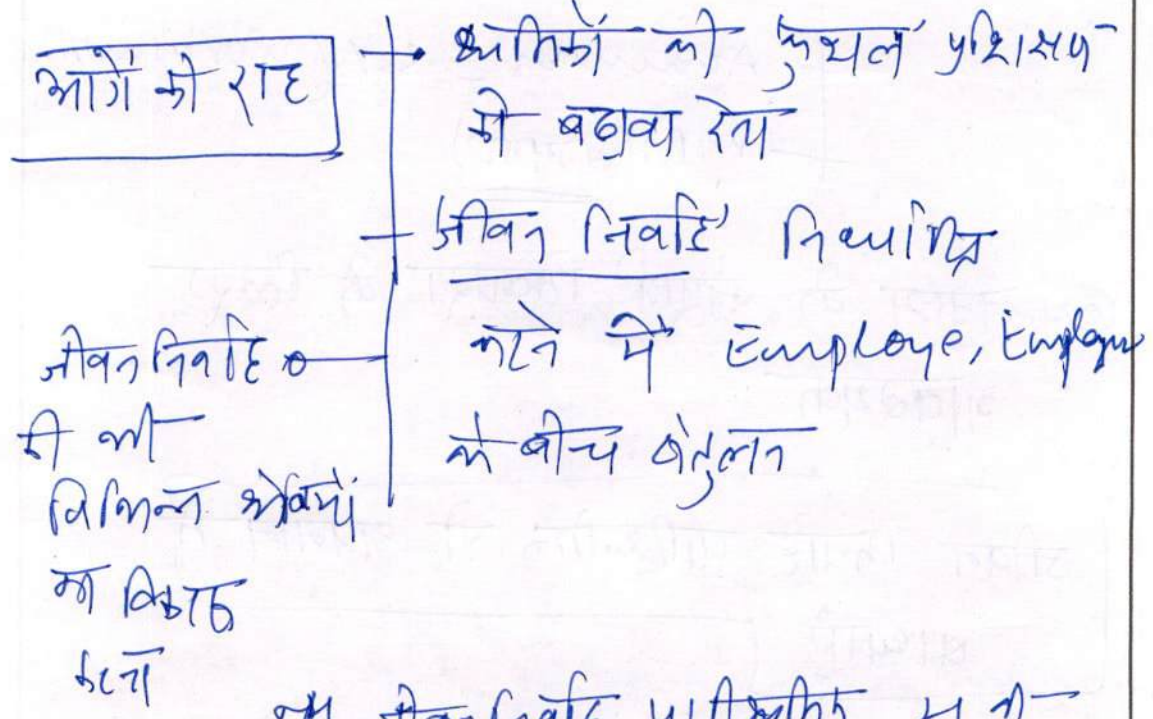 आगे की राह
श्रमिकों को कुशल प्रशिक्षण
को बढ़ावा देना
जीवन निर्वाह निर्धारित
करने में Employe, Employer
के बीच संतुलन
जीवन निर्वाह
की भी
विभिन्न श्रेणियों
का विकास
करना
जीवन निर्वाह